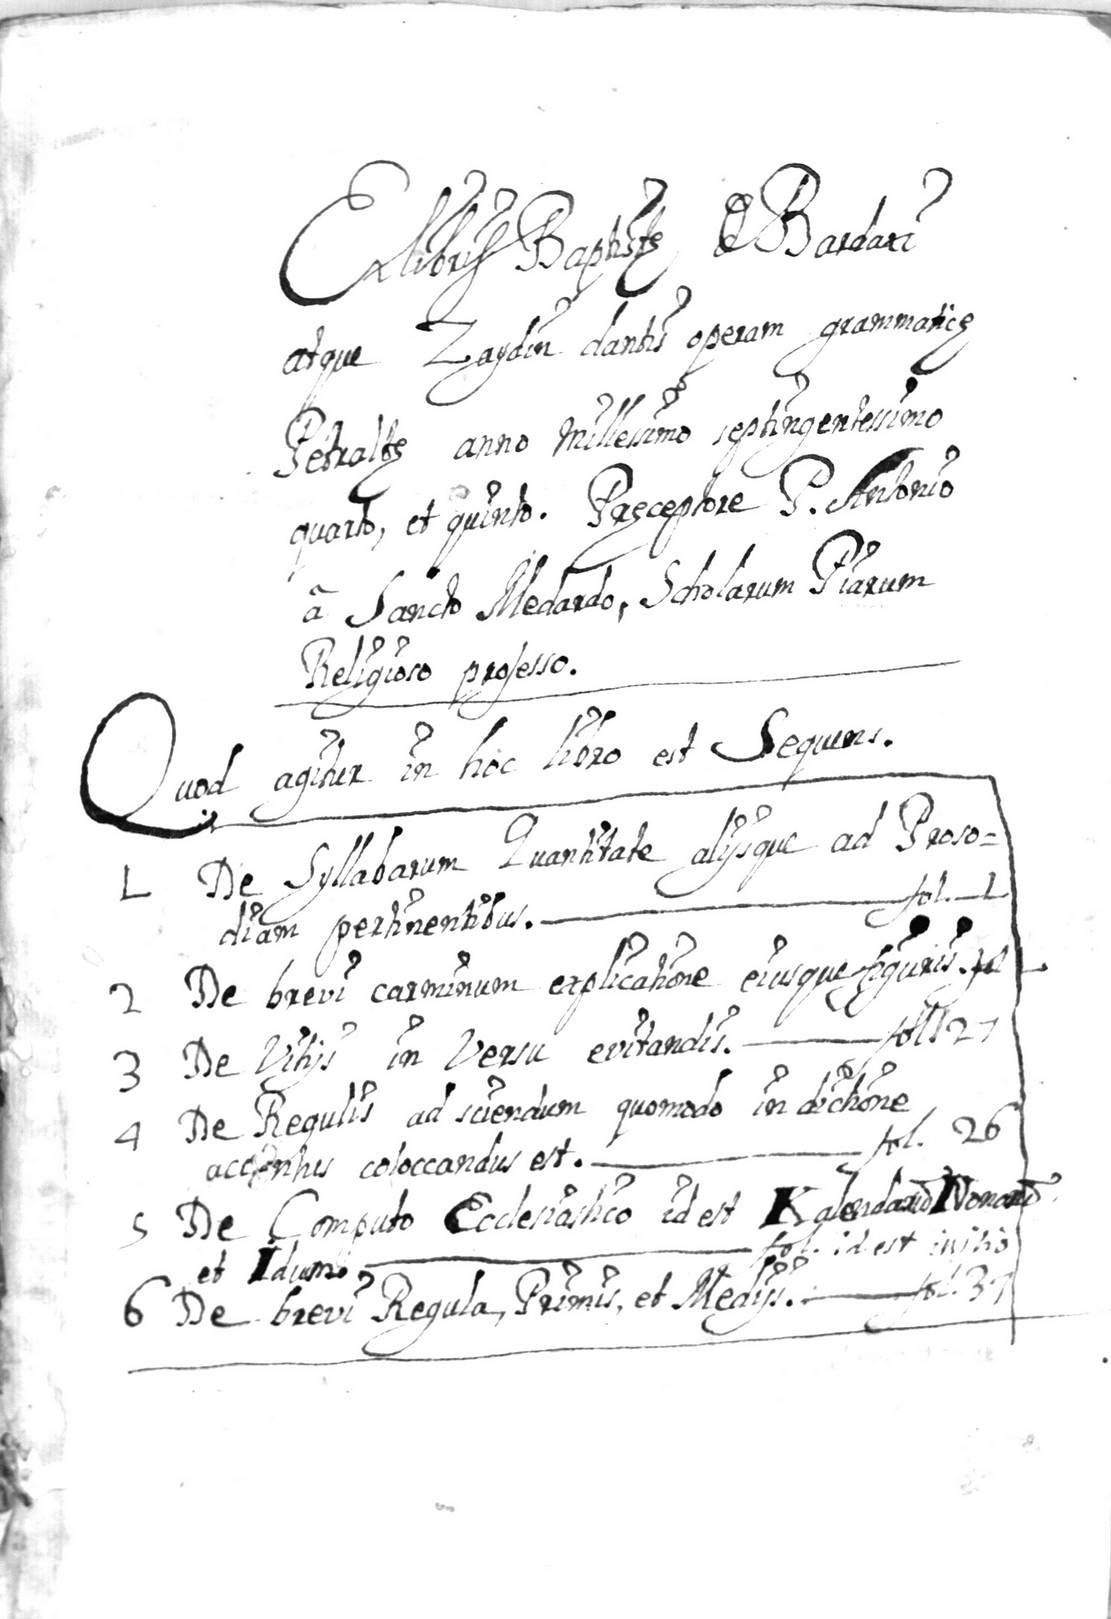 Ex libris Baptistę de Bardaxi
atque Zaydin dantis operam grammaticę
Petraltę anno Millesimo septingentessimo
quarto, et quinto. Pręceptore P. Antonio
â Sancto Medardo, Scholarum Piarum
Religioso professo.
Quod agitur in hoc libro est Sequens.
1 De Syllabarum Quantitate alijsque ad Proso=
diam pertinentibus. fol. 1
2 De brevi carminum explicatione eiusque figuris.
3 De Vitijs in Versu evitandis.
4 De Regulis ad sciendum quomodo in dictione
accentus coloccandus est. fol. 26
5 De Computo Ecclesiastico id est Kalendarū Nonarū
et Iduum. fol. id est initio
6 De brevi Regula, Primis, et Medijs. fol. 37